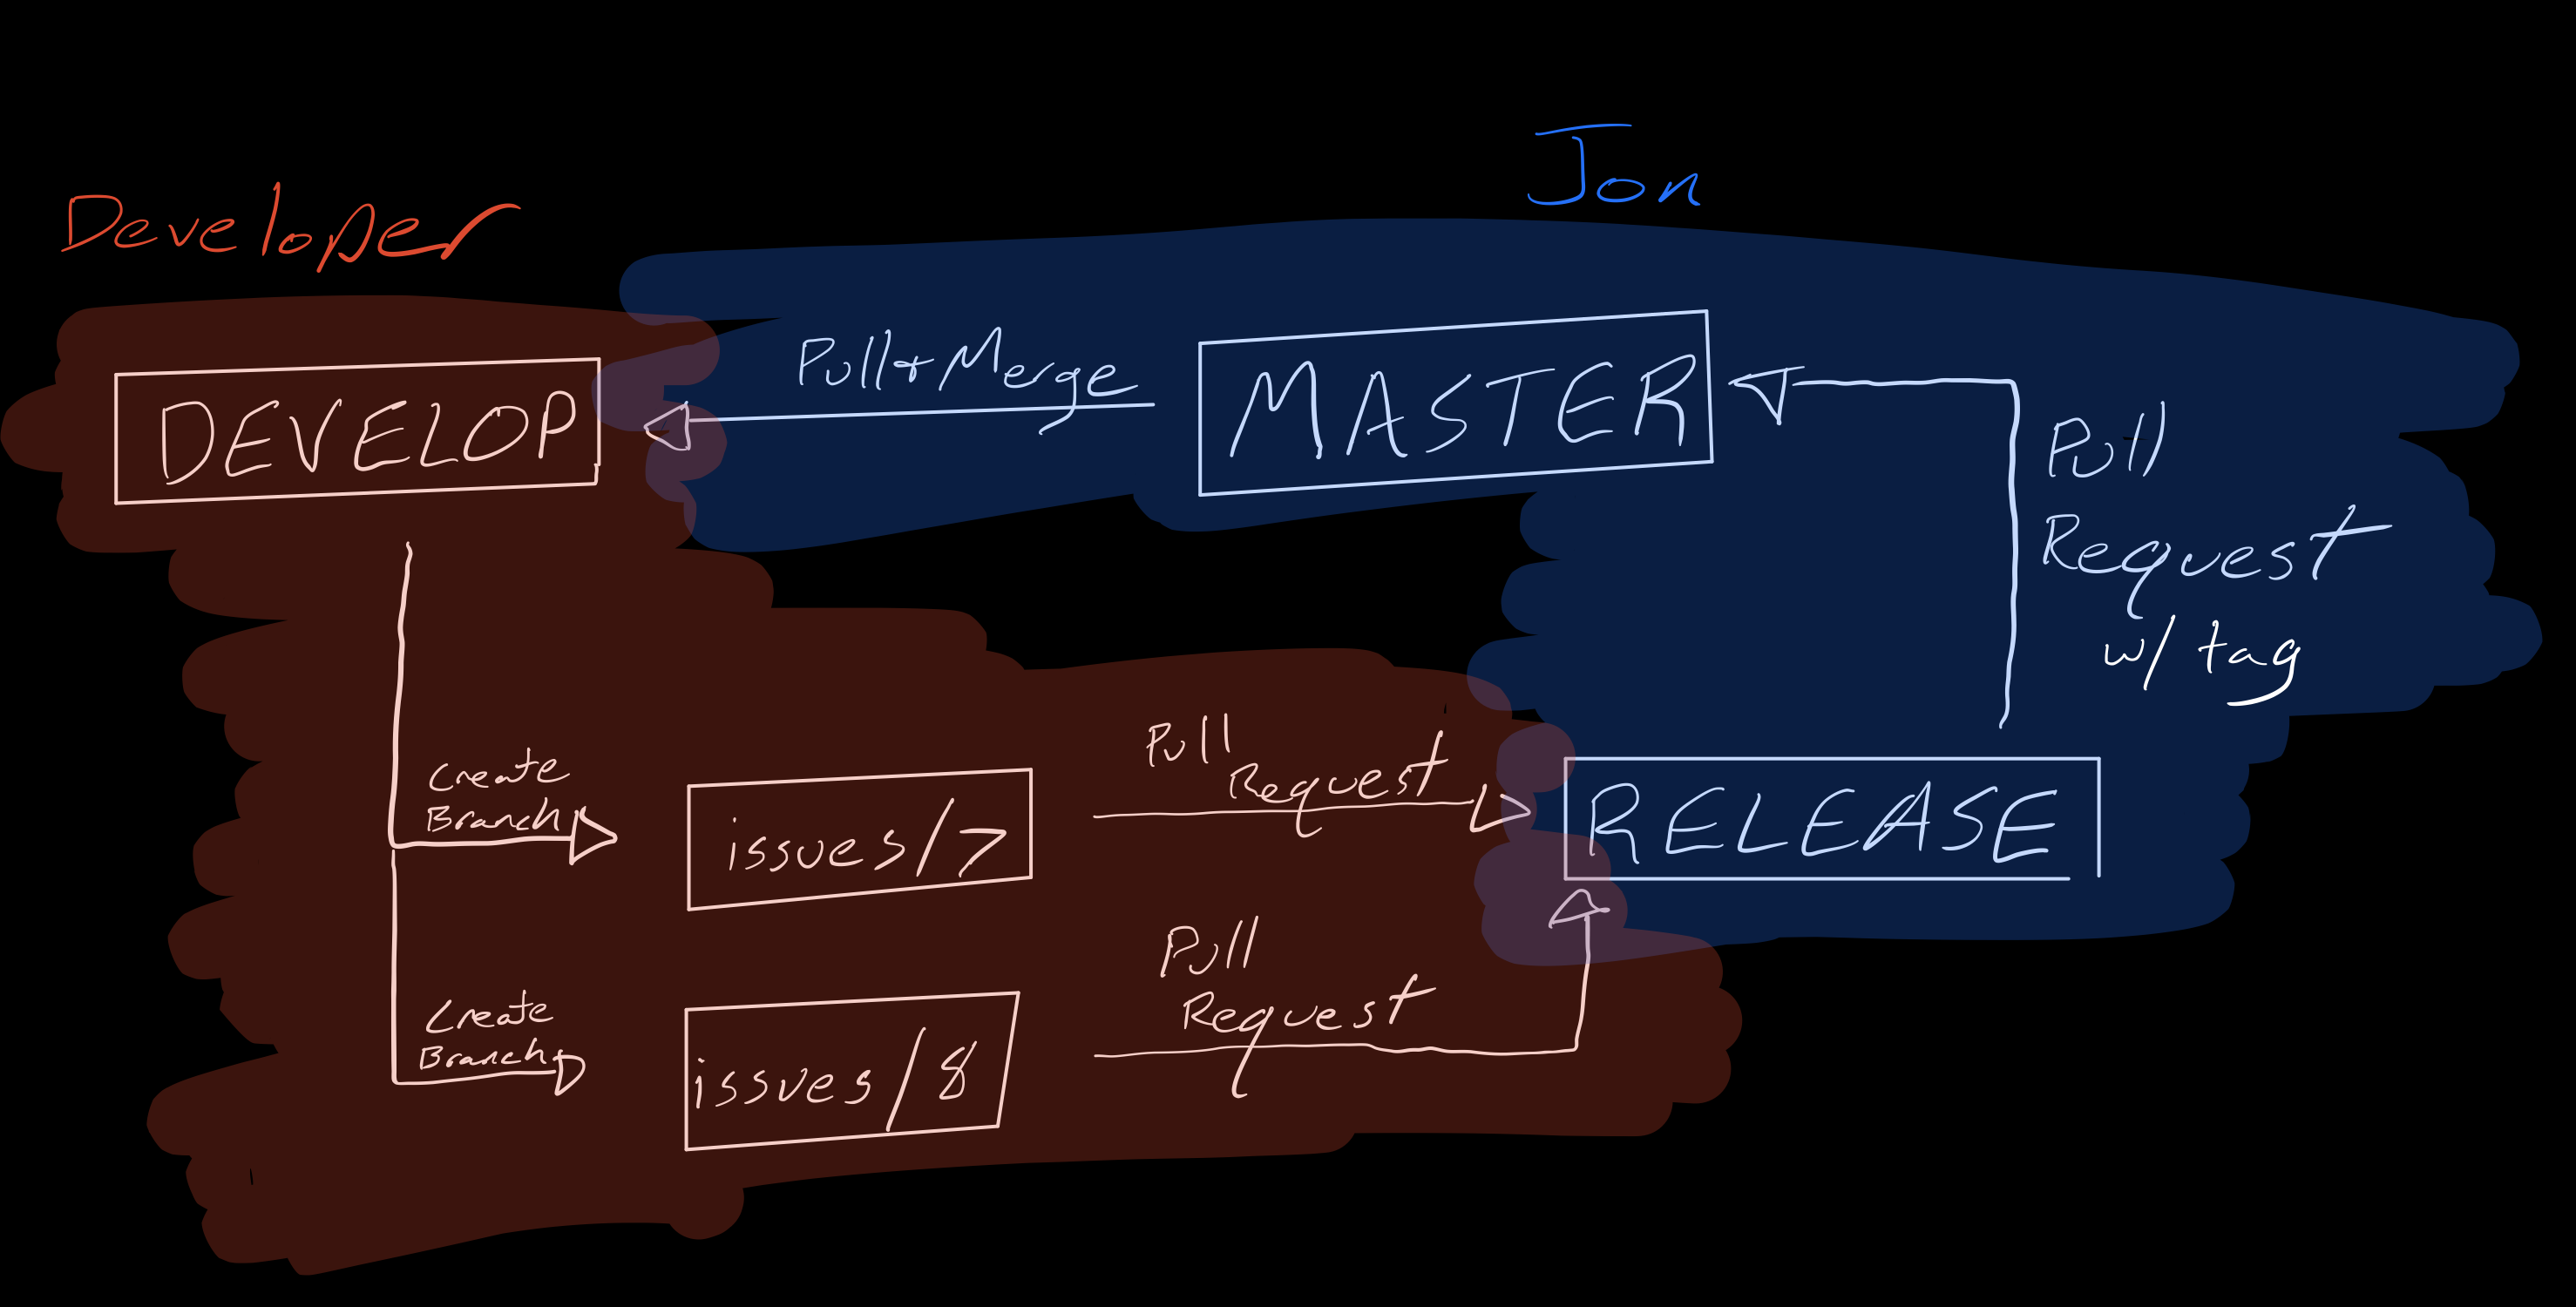 Jon
Developer
Pull + Merge
MASTER
DEVELOP
Pull
Request
w/ tag
Create
Branch
issues/7
Pull
Request
RELEASE
Create
Branch
issues/8
Pull
Request